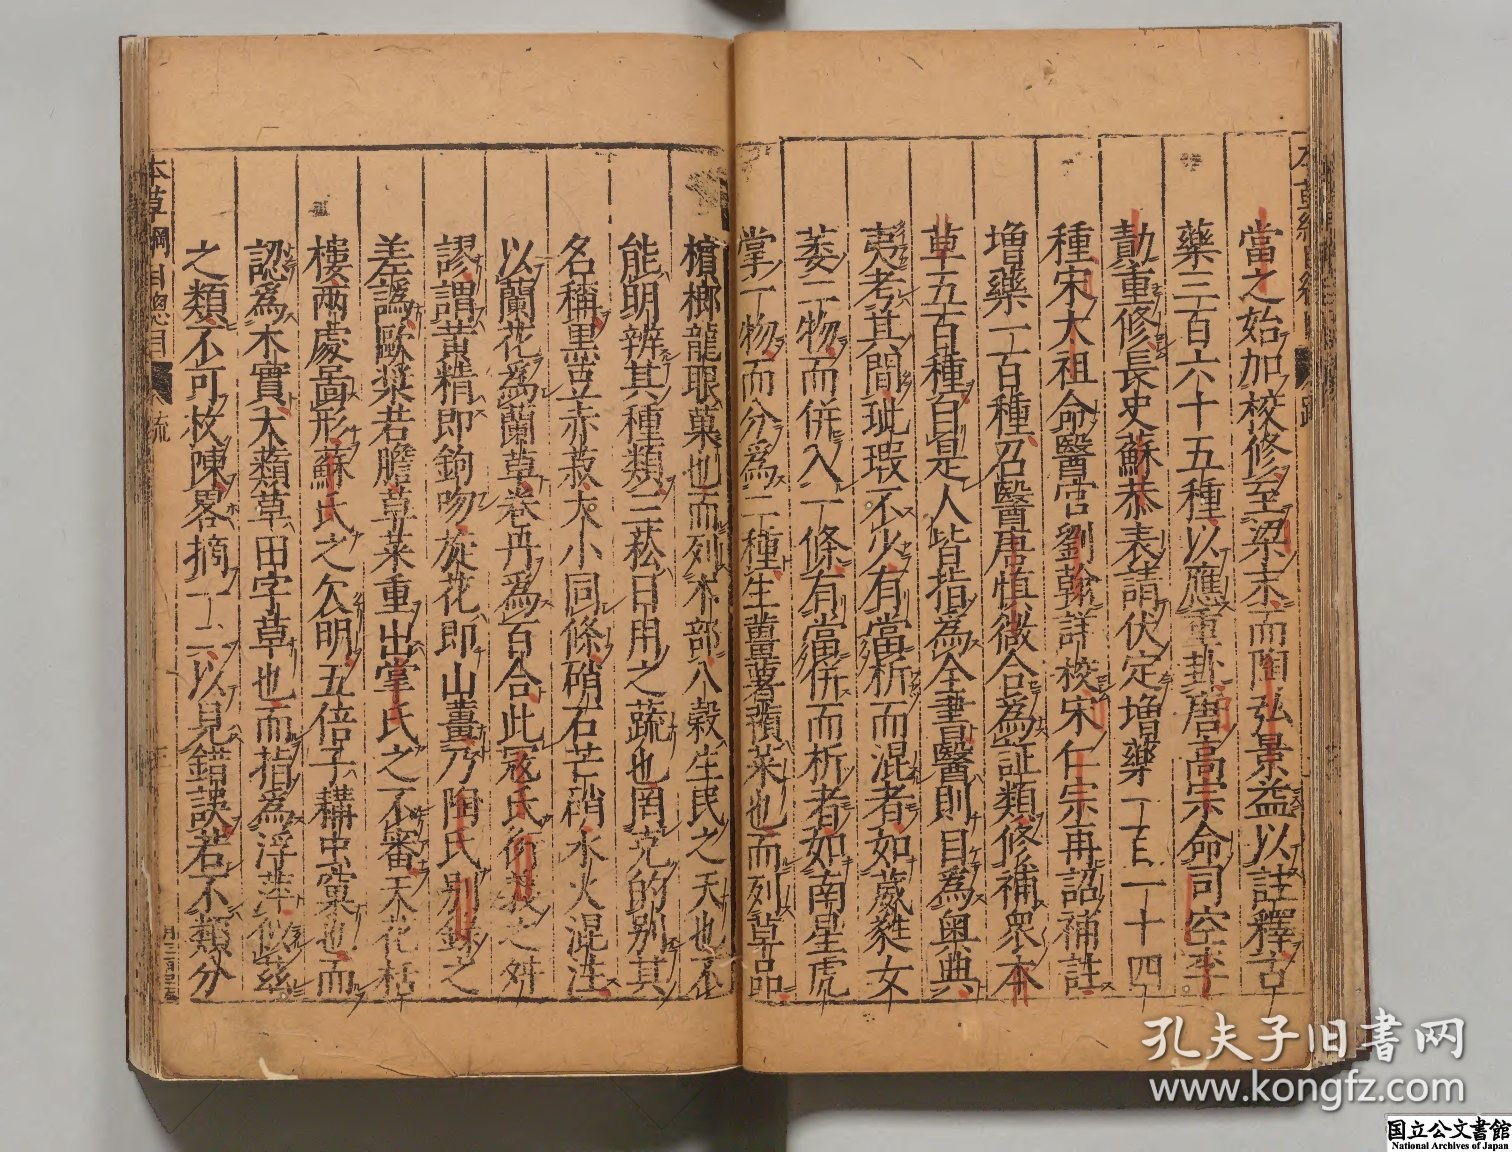 當之始加校修至梁末而陶弘景益以註釋古
藥三百六十五種以應重卦唐高宗命司空李
勣重修長史蘇恭表請伏定增藥一百一十四
種宋太祖命醫官劉翰詳校宋仁宗再詔補註
增藥一百種召醫唐慎微合為証類修補衆本
草五百種自是人皆指為全書醫則目為奧典
夷考其間玼瑕不少有當析而混者如葳蕤女
萎二物而併入一條有當併而析者如南星虎
掌一物而分為二種生薑薯蕷菜也而列草品
檳榔龍眼菓也而列木部八穀生民之天也不
能明辨其種類三菘日用之蔬也罔克的别其
名稱黑豆赤菽大小同條硝石芒硝水火混注
以蘭花為蘭草卷丹為百合此寇氏衍義之舛
謬謂黃精即鉤吻旋花即山薑乃陶氏别錄之
差譌歐漿苦膽草菜重出掌氏之不審天花栝
樓兩處啚形蘇氏之欠明五倍子構虫窠也而
認為木實大蘋草田字草也而指為浮萍似兹
之類不可枚陳畧摘一二以見錯誤若不類分
本草綱目總目 䟽
孔夫子旧書网
www.kongfz.com
国立公文書館
National Archives of Japan